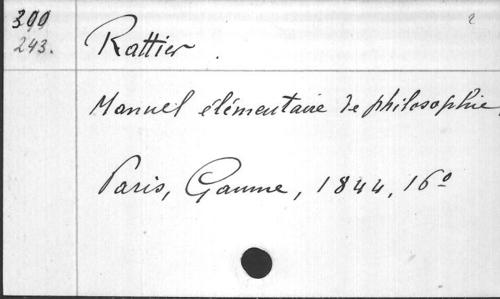 390
243.
Rattier.
Manuel élémentaire de philosophie.
Paris, Gaume, 1844, 16º